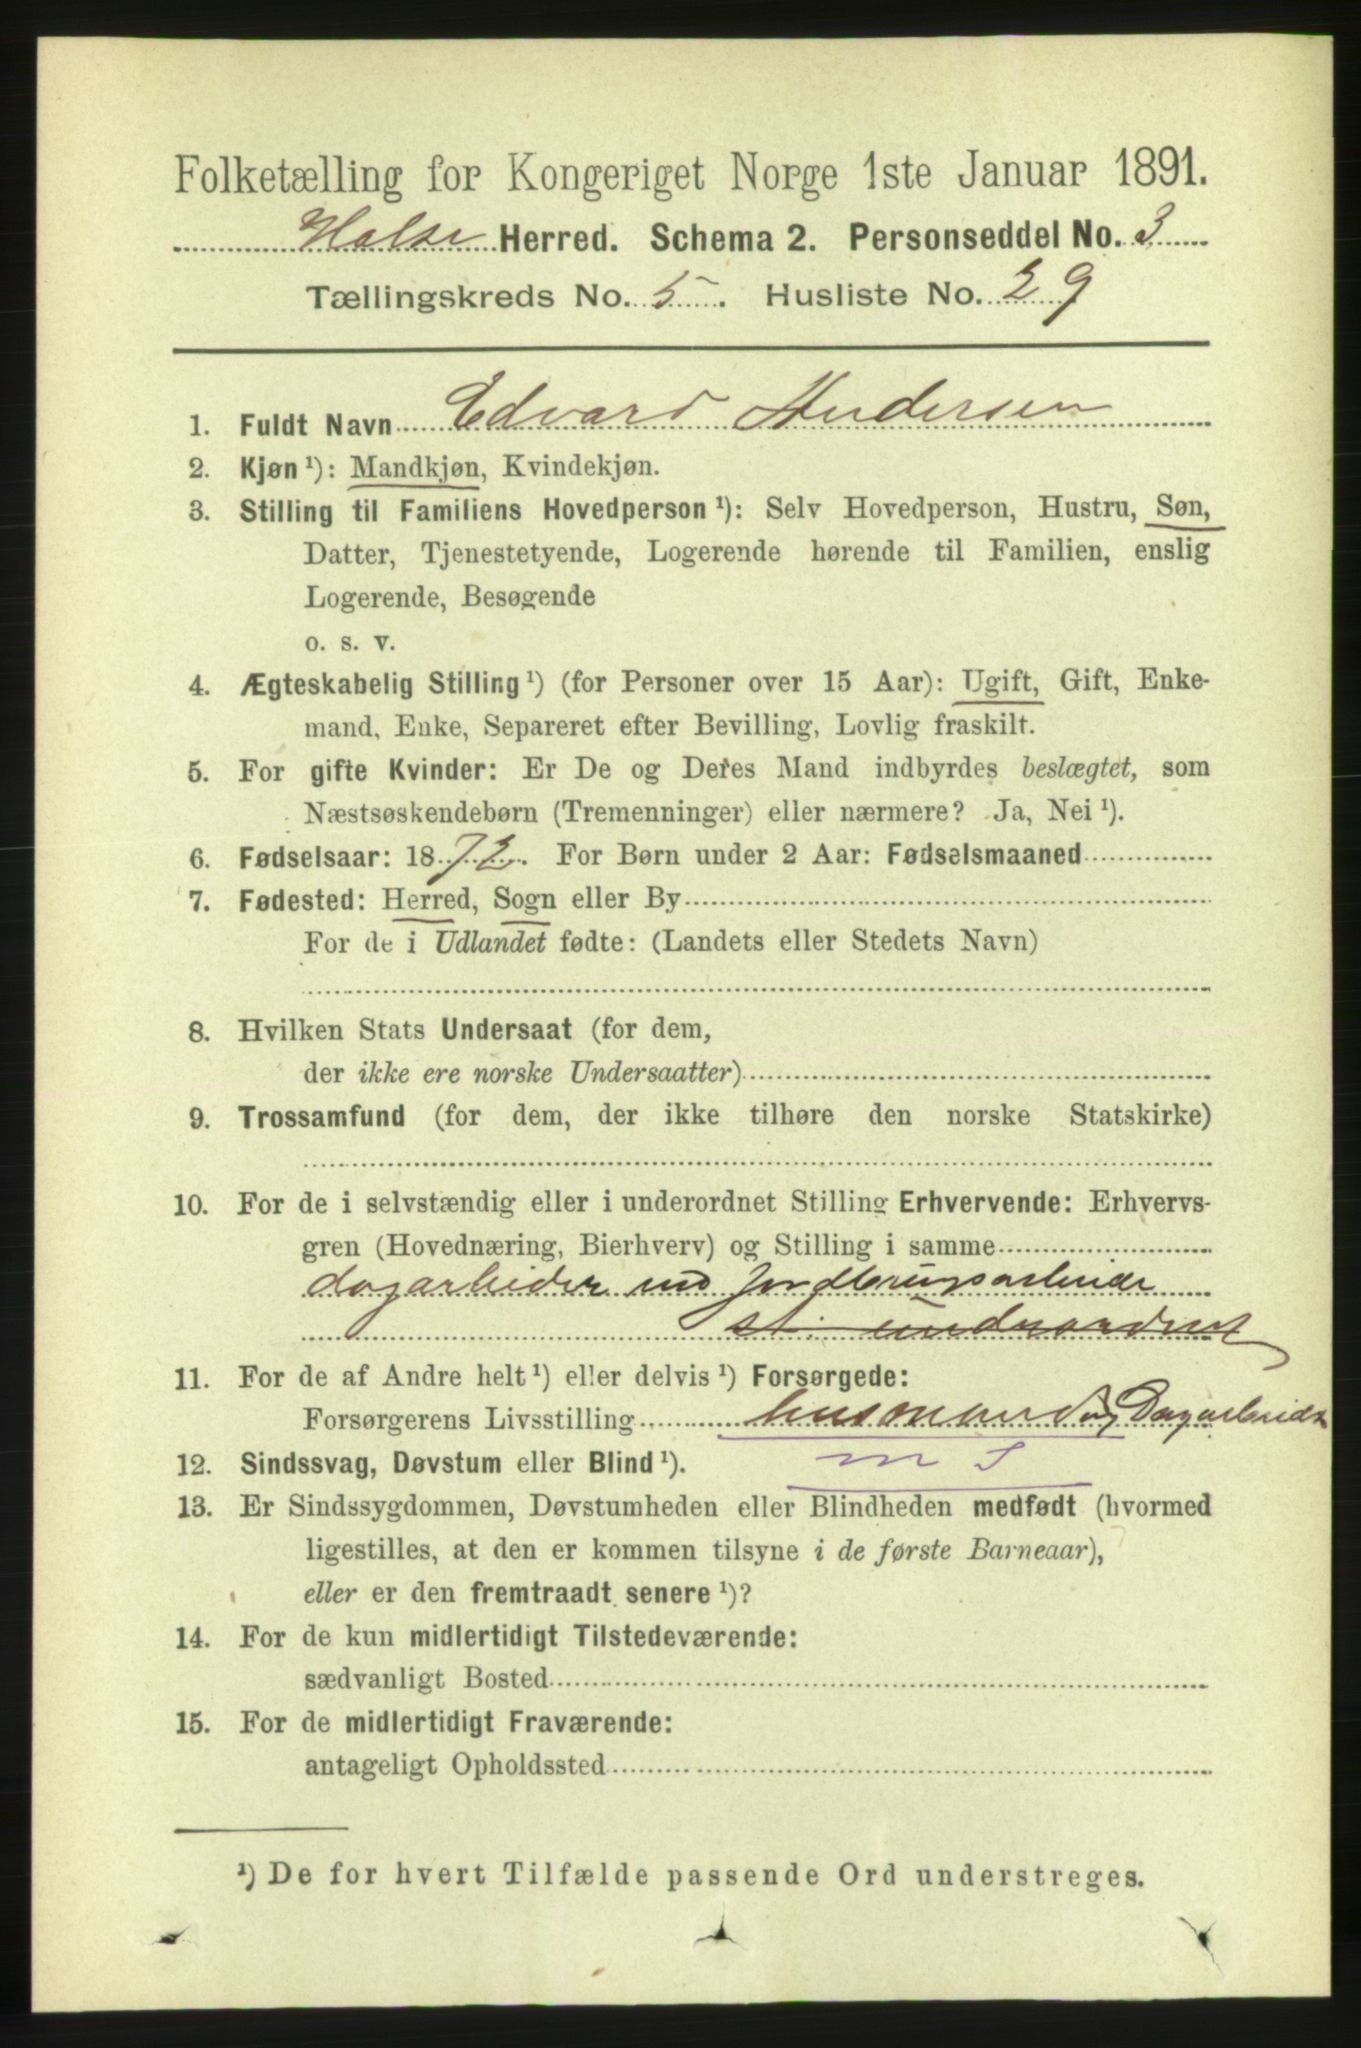 Folketælling for Kongeriget Norge 1ste Januar 1891.
Halse Herred. Schema 2. Personseddel No. 3
Tællingskreds No. 5. Husliste No. 29
1. Fuldt Navn Edvard Andersen
2. Kjøn ¹): Mandkjøn, Kvindekjøn.
3. Stilling til Familiens Hovedperson ¹): Selv Hovedperson, Hustru, Søn,
Datter, Tjenestetyende, Logerende hørende til Familien, enslig
Logerende, Besøgende
o. s. v.
4. Ægteskabelig Stilling ¹) (for Personer over 15 Aar): Ugift, Gift, Enke-
mand, Enke, Separeret efter Bevilling, Lovlig fraskilt.
5. For gifte Kvinder: Er De og Deres Mand indbyrdes beslægtet, som
Næstsøskendebørn (Tremenninger) eller nærmere? Ja, Nei ¹).
6. Fødselsaar: 1872. For Børn under 2 Aar: Fødselsmaaned
7. Fødested: Herred, Sogn eller By
For de i Udlandet fødte: (Landets eller Stedets Navn)
8. Hvilken Stats Undersaat (for dem,
der ikke ere norske Undersaatter)
9. Trossamfund (for dem, der ikke tilhøre den norske Statskirke)
10. For de i selvstændig eller i underordnet Stilling Erhvervende: Erhvervs-
gren (Hovednæring, Bierhverv) og Stilling i samme
dagarbeider ved Jordbrugsarbeide
st. underordnet
11. For de af Andre helt ¹) eller delvis ¹) Forsørgede:
Forsørgerens Livsstilling husmand og Dagarbeider
12. Sindssvag, Døvstum eller Blind ¹). m S
13. Er Sindssygdommen, Døvstumheden eller Blindheden medfødt (hvormed
ligestilles, at den er kommen tilsyne i de første Barneaar),
eller er den fremtraadt senere ¹)?
14. For de kun midlertidigt Tilstedeværende:
sædvanligt Bosted
15. For de midlertidigt Fraværende:
antageligt Opholdssted
¹) De for hvert Tilfælde passende Ord understreges.